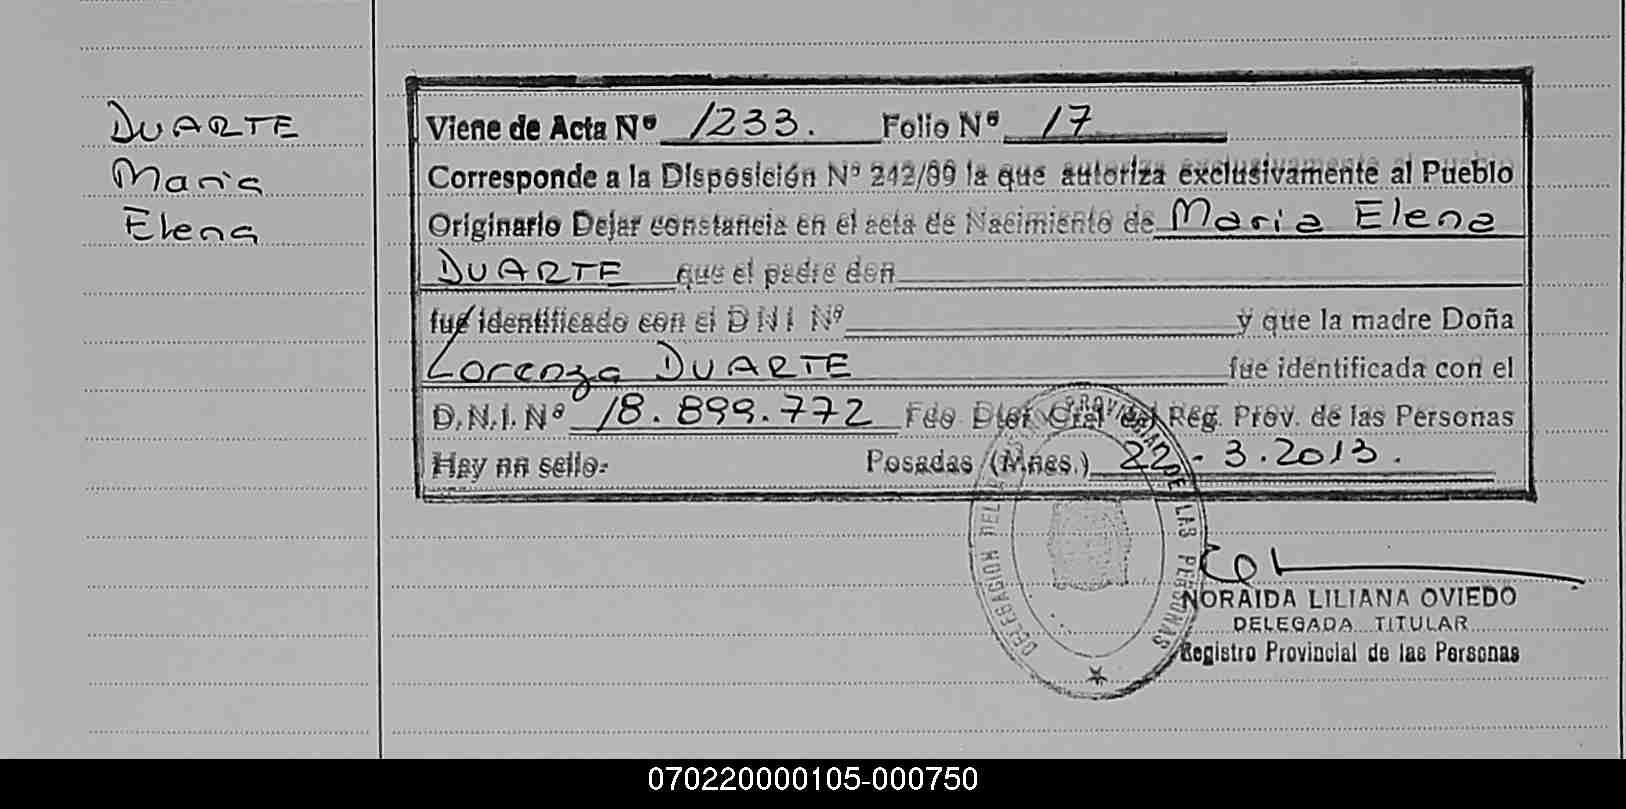 DUARTE
Maria
Elena
Viene de Acta Nº 1233. Folio Nº 17
Corresponde a la Disposición Nº 242/99 la que autoriza exclusivamente al Pueblo
Originario Dejar constancia en el acta de Nacimiento de Maria Elena
DUARTE que el padre don
fue identificado con el D N I Nº y que la madre Doña
Lorenza DUARTE fue identificada con el
D.N.I. Nº 18.899.772 Fdo Dtor Gral del Reg. Prov. de las Personas
Hay un sello- Posadas (Mnes.) 22-3.2013.
DELEGACION DEL PROVINCIAL DE LAS PERSONAS
NORAIDA LILIANA OVIEDO
DELEGADA TITULAR
Registro Provincial de las Personas
070220000105-000750